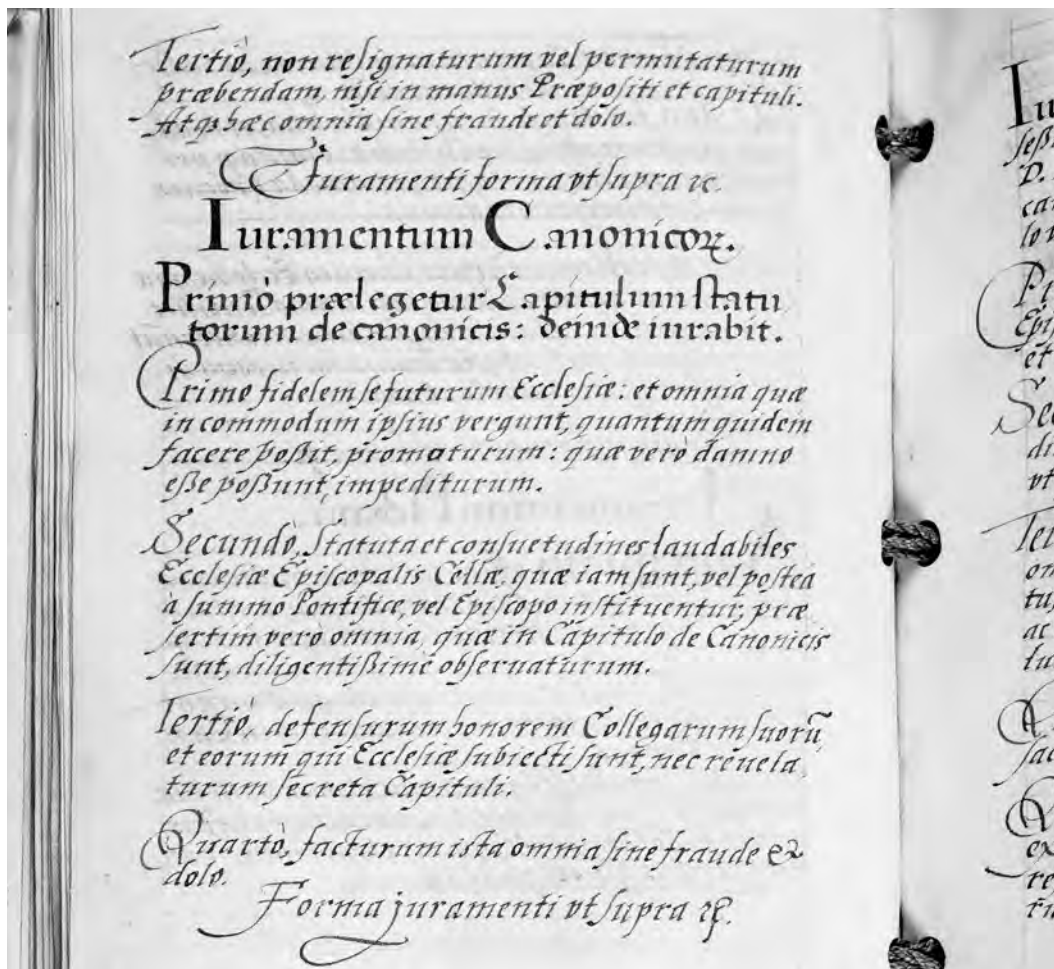 Tertiò, non resignaturum vel permutaturum
præbendam, nisi in manus Præpositi et capituli.
Atqꝫ hæc omnia sine fraude et dolo.
Juramenti forma vt supra ⁊c.
Iuramentum Canonicoꝝ.
Primò prælegetur Capitulum statu
torum de canonicis: deinde iurabit.
Primo fidelem se futurum Ecclesiæ: et omnia quæ
in commodum ipsius vergunt, quantum quidem
facere poßit, promoturum: quæ verò damno
eße poßunt, impediturum.
Secundò, Statuta et consuetudines laudabiles
Ecclesiæ Episcopalis Cellæ, quæ iam sunt, vel postea
à summo Pontifice, vel Episcopo instituentur, præ
sertim verò omnia, quæ in Capitulo de Canonicis
sunt, diligentißimè obseruaturum.
Tertiò, defensurum honorem Collegarum suorū
et eorum qui Ecclesiæ subiecti sunt, nec reuela,
turum secreta Capituli.
Quartò, facturum ista omnia sine fraude &
dolo.
Forma juramenti vt supra ⁊c.